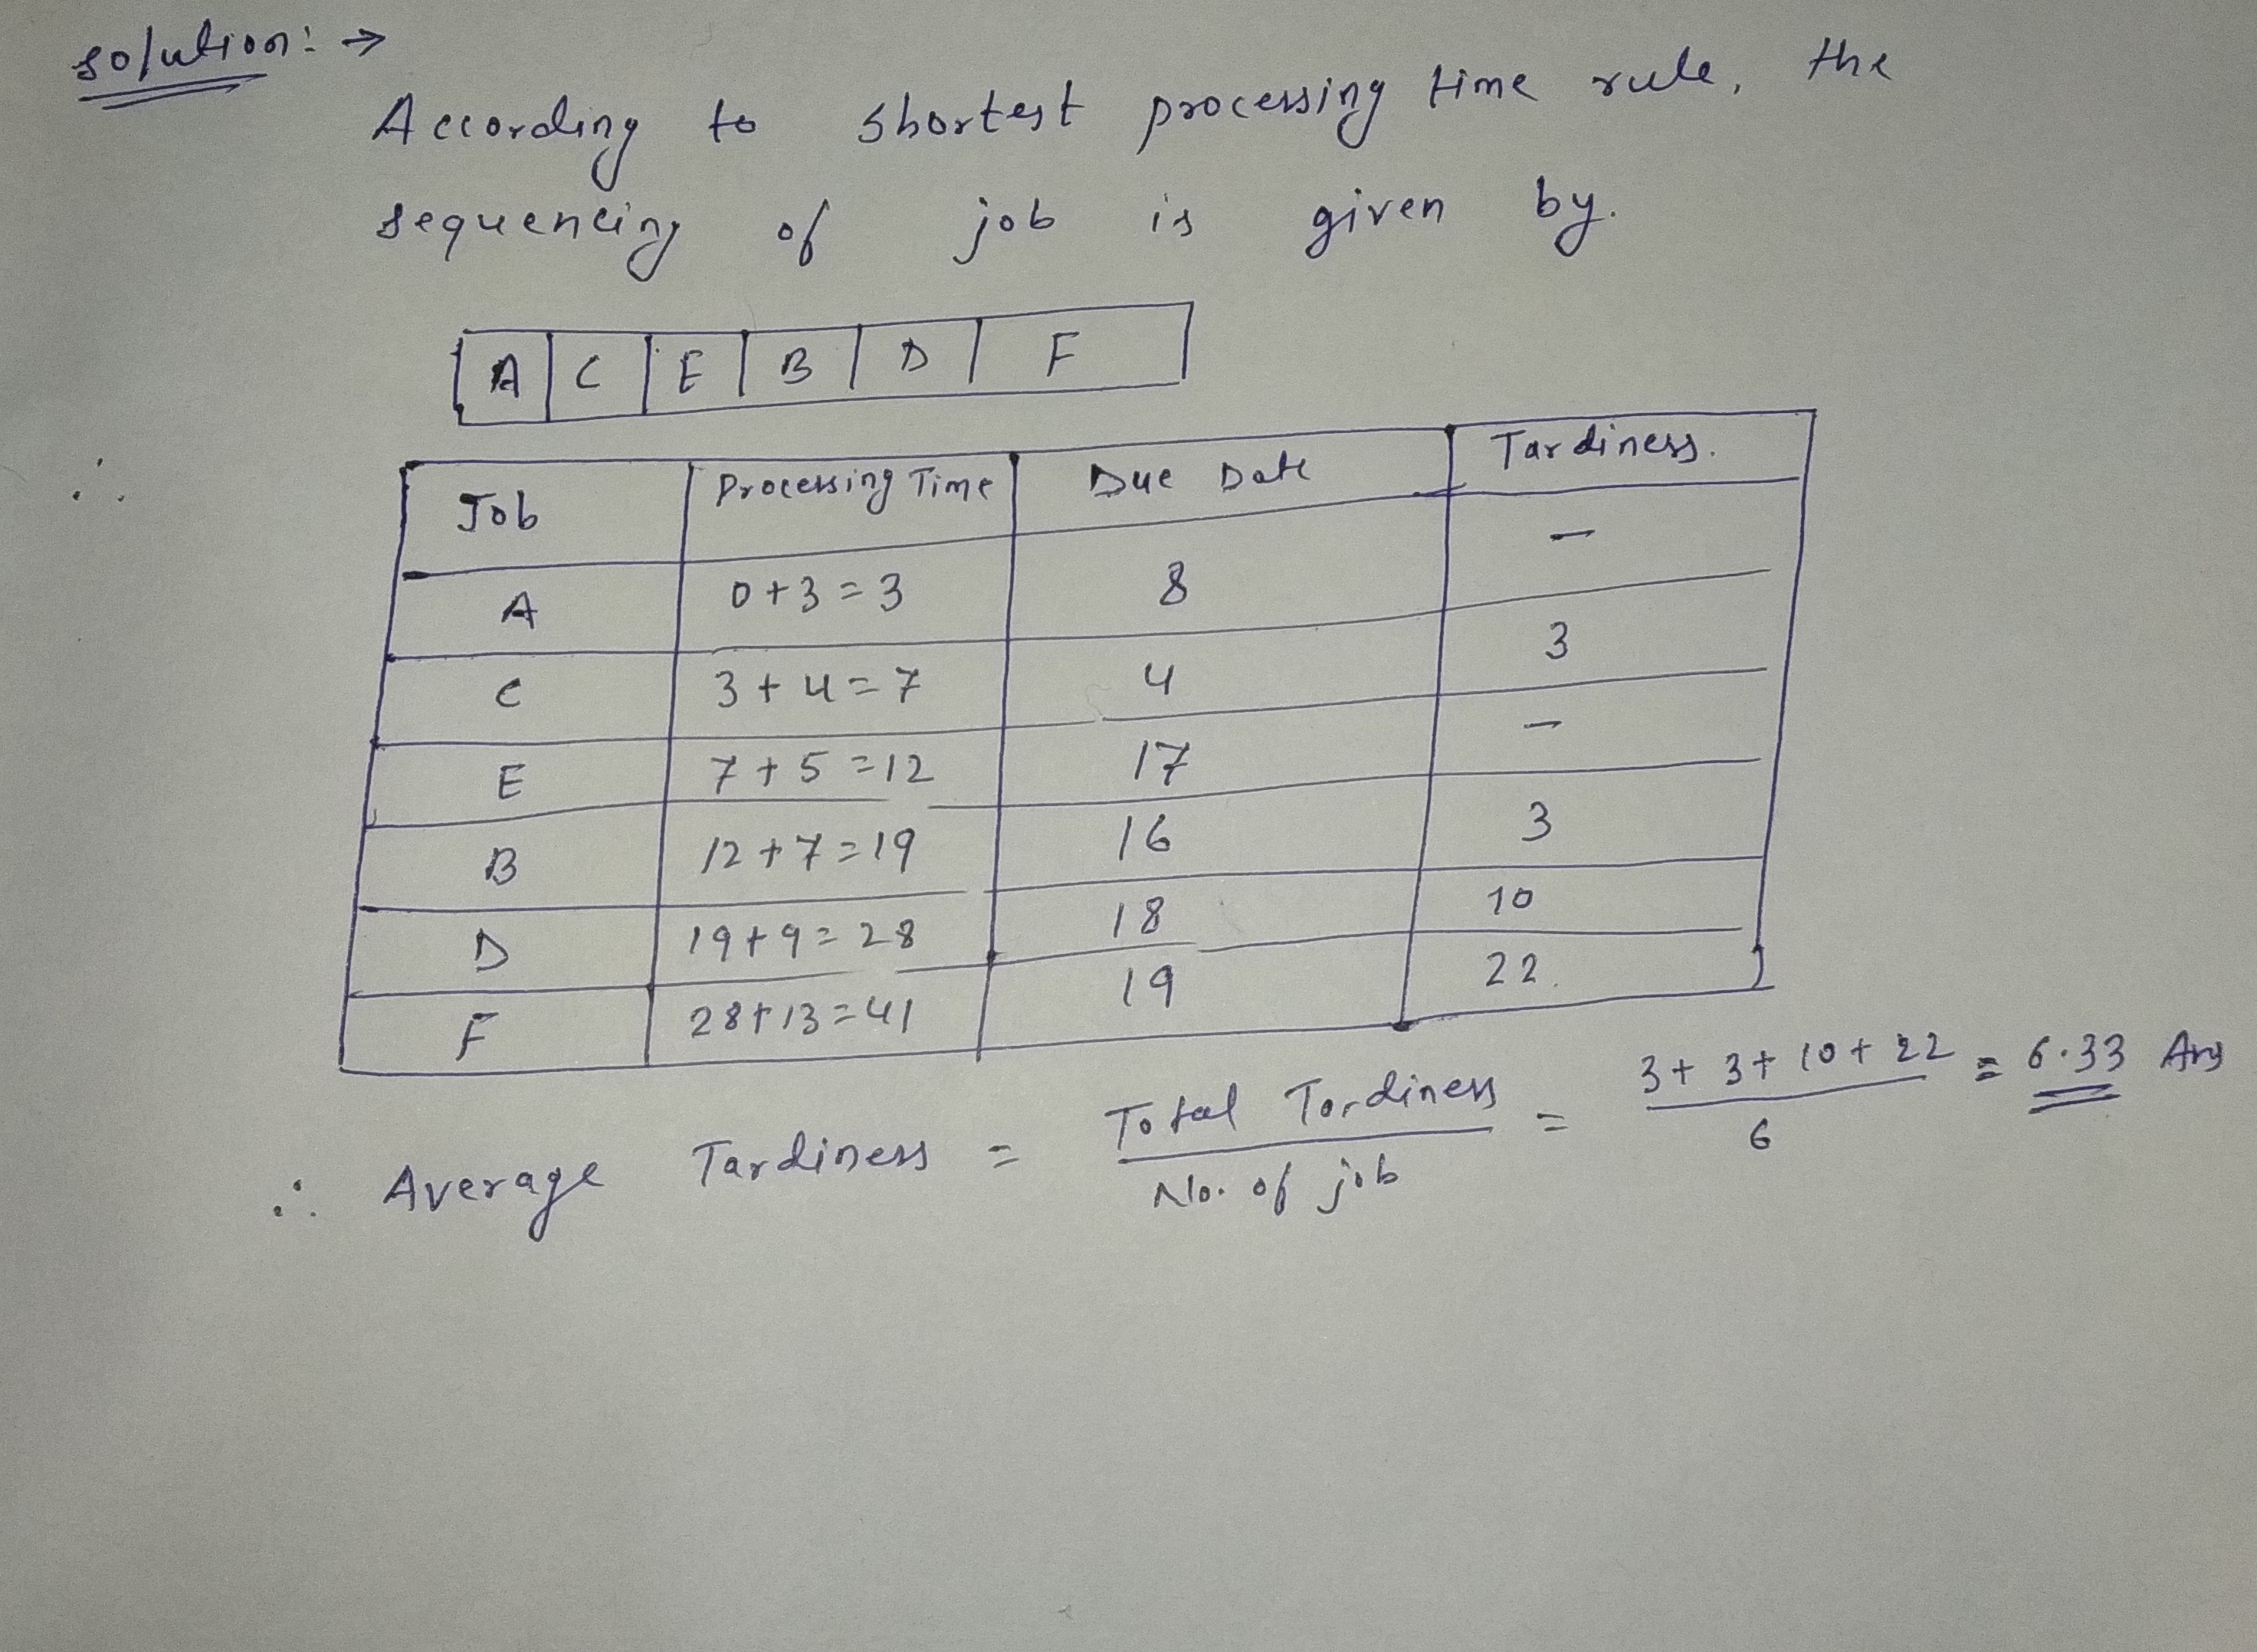 solution: →
According to shortest processing time rule, the
sequencing of job is given by.
A C E B D F
∴
Job Processing Time Due Date Tardiness.
A 0+3=3 8 –
C 3+4=7 4 3
E 7+5=12 17 –
B 12+7=19 16 3
D 19+9=28 18 10
F 28+13=41 19 22.
∴ Average Tardiness = Total Tardiness / No. of job = 3+3+10+22 / 6 = 6.33 Ans